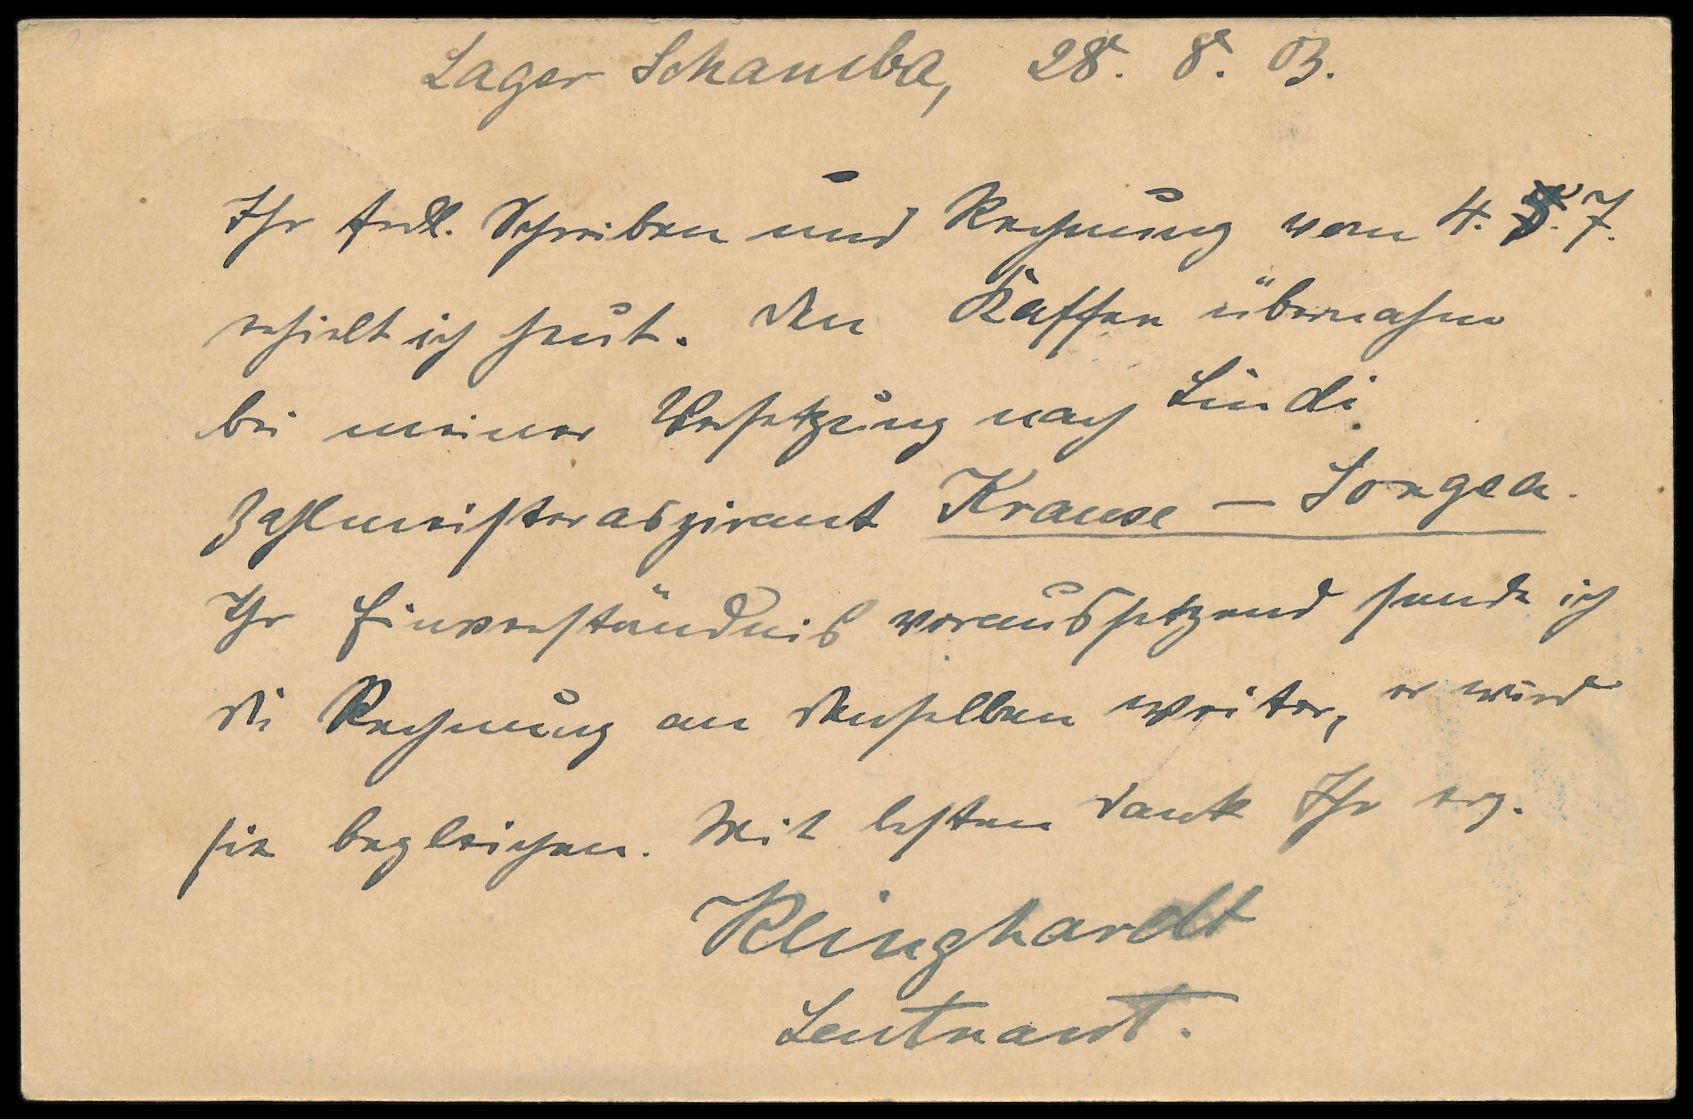 Lager Schamba, 28. 8. 03.
Ihr frdl. Schreiben und Rechnung vom 4. 7.
erhielt ich heut. Den Kaffee übernahm
bei meiner Versetzung nach Lindi
Zahlmeisteraspirant Krause – Songea.
Ihr Einverständnis voraussetzend sende ich
die Rechnung an denselben weiter, er wird
sie begleichen. Mit besten Dank Ihr erg.
Klinghardt
Leutnant.